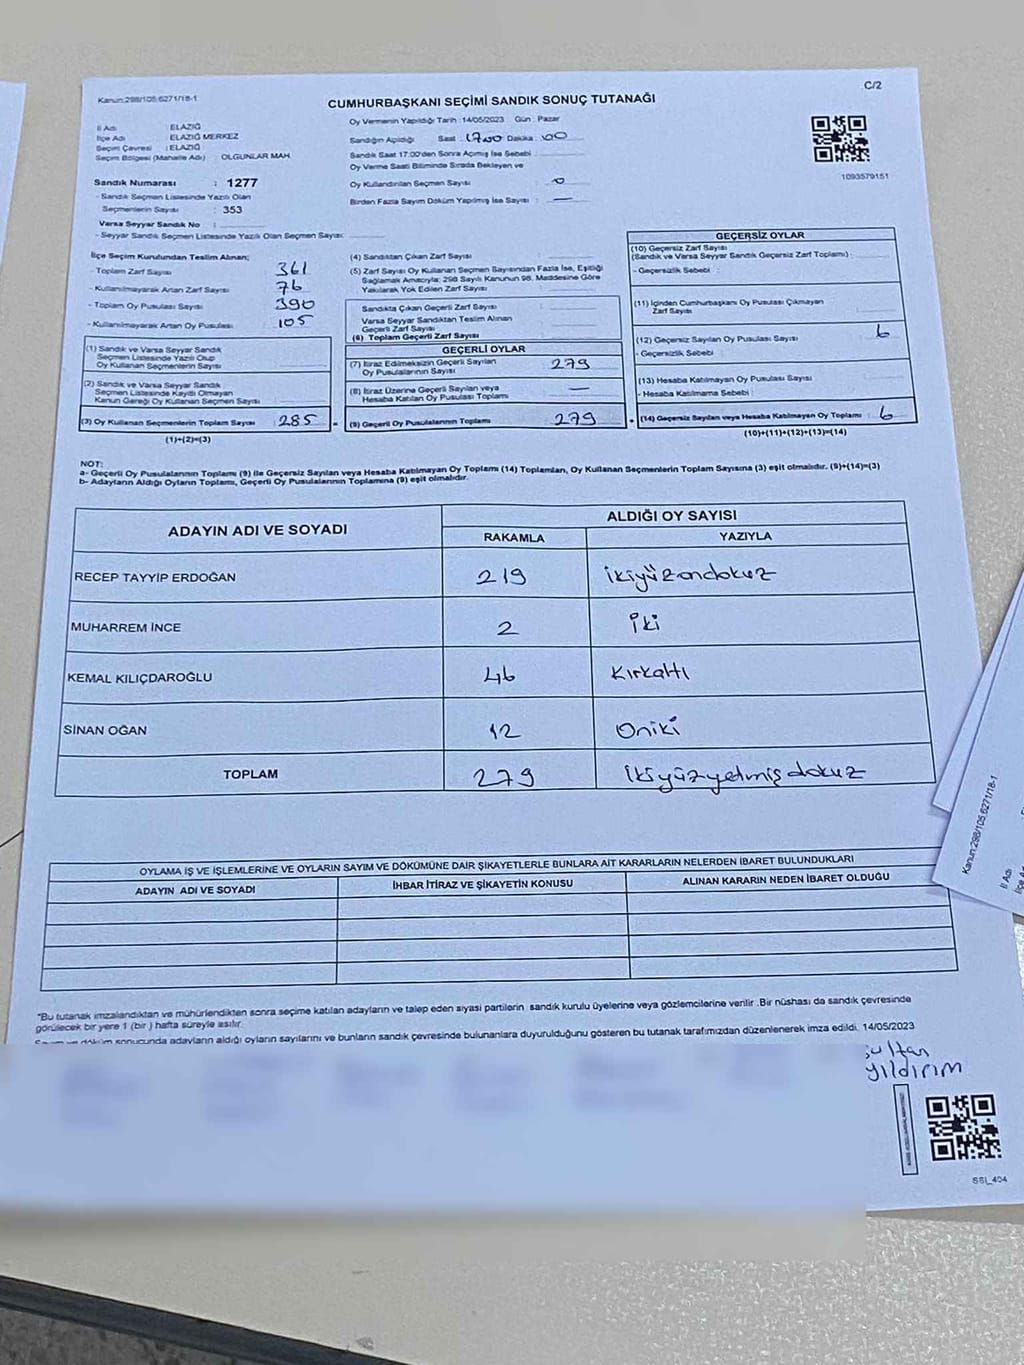 Kanun:298/105;6271/18-1
C/2
CUMHURBAŞKANI SEÇİMİ SANDIK SONUÇ TUTANAĞI
İl Adı : ELAZIĞ
İlçe Adı : ELAZIĞ MERKEZ
Seçim Çevresi : ELAZIĞ
Seçim Bölgesi (Mahalle Adı) : OLGUNLAR MAH.
Sandık Numarası : 1277
- Sandık Seçmen Listesinde Yazılı Olan
Seçmenlerin Sayısı : 353
Varsa Seyyar Sandık No :
- Seyyar Sandık Seçmen Listesinde Yazılı Olan Seçmen Sayısı:
Oy Vermenin Yapıldığı Tarih : 14/05/2023 Gün : Pazar
Sandığın Açıldığı Saat : 17:00 Dakika : 00
Sandık Saat 17.00'den Sonra Açımış İse Sebebi :
Oy Verme Saati Bitiminde Sırada Bekleyen ve
Oy Kullandırılan Seçmen Sayısı : 0
Birden Fazla Sayım Döküm Yapılmış İse Sayısı : —
1093579151
İlçe Seçim Kurulundan Teslim Alınan;
- Toplam Zarf Sayısı : 361
- Kullanılmayarak Artan Zarf Sayısı : 76
- Toplam Oy Pusulası Sayısı : 390
- Kullanılmayarak Artan Oy Pusulası : 105
(1) Sandık ve Varsa Seyyar Sandık
Seçmen Listesinde Yazılı Olup
Oy Kullanan Seçmenlerin Sayısı :
(2) Sandık ve Varsa Seyyar Sandık
Seçmen Listesinde Kayıtlı Olmayan
Kanun Gereği Oy Kullanan Seçmen Sayısı :
(3) Oy Kullanan Seçmenlerin Toplam Sayısı : 285 =
(1)+(2)=(3)
(4) Sandıktan Çıkan Zarf Sayısı :
(5) Zarf Sayısı Oy Kullanan Seçmen Sayısından Fazla İse, Eşitliği
Sağlamak Amacıyla; 298 Sayılı Kanunun 98. Maddesine Göre
Yakılarak Yok Edilen Zarf Sayısı :
Sandıkta Çıkan Geçerli Zarf Sayısı :
Varsa Seyyar Sandıktan Teslim Alınan
Geçerli Zarf Sayısı :
(6) Toplam Geçerli Zarf Sayısı :
GEÇERLİ OYLAR
(7) İtiraz Edilmeksizin Geçerli Sayılan
Oy Pusulalarının Sayısı : 279
(8) İtiraz Üzerine Geçerli Sayılan veya
Hesaba Katılan Oy Pusulası Toplamı : —
(9) Geçerli Oy Pusulalarının Toplamı : 279 +
GEÇERSİZ OYLAR
(10) Geçersiz Zarf Sayısı
(Sandık ve Varsa Seyyar Sandık Geçersiz Zarf Toplamı) :
- Geçersizlik Sebebi :
(11) İçinden Cumhurbaşkanı Oy Pusulası Çıkmayan
Zarf Sayısı :
(12) Geçersiz Sayılan Oy Pusulası Sayısı : 6
- Geçersizlik Sebebi :
(13) Hesaba Katılmayan Oy Pusulası Sayısı :
- Hesaba Katılmama Sebebi :
(14) Geçersiz Sayılan veya Hesaba Katılmayan Oy Toplamı : 6
(10)+(11)+(12)+(13)=(14)
NOT:
a- Geçerli Oy Pusulalarının Toplamı (9) ile Geçersiz Sayılan veya Hesaba Katılmayan Oy Toplamı (14) Toplamları, Oy Kullanan Seçmenlerin Toplam Sayısına (3) eşit olmalıdır. (9)+(14)=(3)
b- Adayların Aldığı Oyların Toplamı, Geçerli Oy Pusulalarının Toplamına (9) eşit olmalıdır.
ADAYIN ADI VE SOYADI
ALDIĞI OY SAYISI
RAKAMLA YAZIYLA
RECEP TAYYİP ERDOĞAN 219 ikiyüzondokuz
MUHARREM İNCE 2 iki
KEMAL KILIÇDAROĞLU 46 Kırkaltı
SİNAN OĞAN 12 Oniki
TOPLAM 279 ikiyüzyetmişdokuz
OYLAMA İŞ VE İŞLEMLERİNE VE OYLARIN SAYIM VE DÖKÜMÜNE DAİR ŞİKAYETLERLE BUNLARA AİT KARARLARIN NELERDEN İBARET BULUNDUKLARI
ADAYIN ADI VE SOYADI İHBAR İTİRAZ VE ŞİKAYETİN KONUSU ALINAN KARARIN NEDEN İBARET OLDUĞU
"Bu tutanak imzalandıktan ve mühürlendikten sonra seçime katılan adayların ve talep eden siyasi partilerin sandık kurulu üyelerine veya gözlemcilerine verilir .Bir nüshası da sandık çevresinde
görülecek bir yere 1 (bir ) hafta süreyle asılır.
Sayım ve döküm sonucunda adayların aldığı oyların sayılarını ve bunların sandık çevresinde bulunanlara duyurulduğunu gösteren bu tutanak tarafımızdan düzenlenerek imza edildi. 14/05/2023
Sultan
Yıldırım
SSI_404
Kanun:298/105;6271/18-1
İl Adı